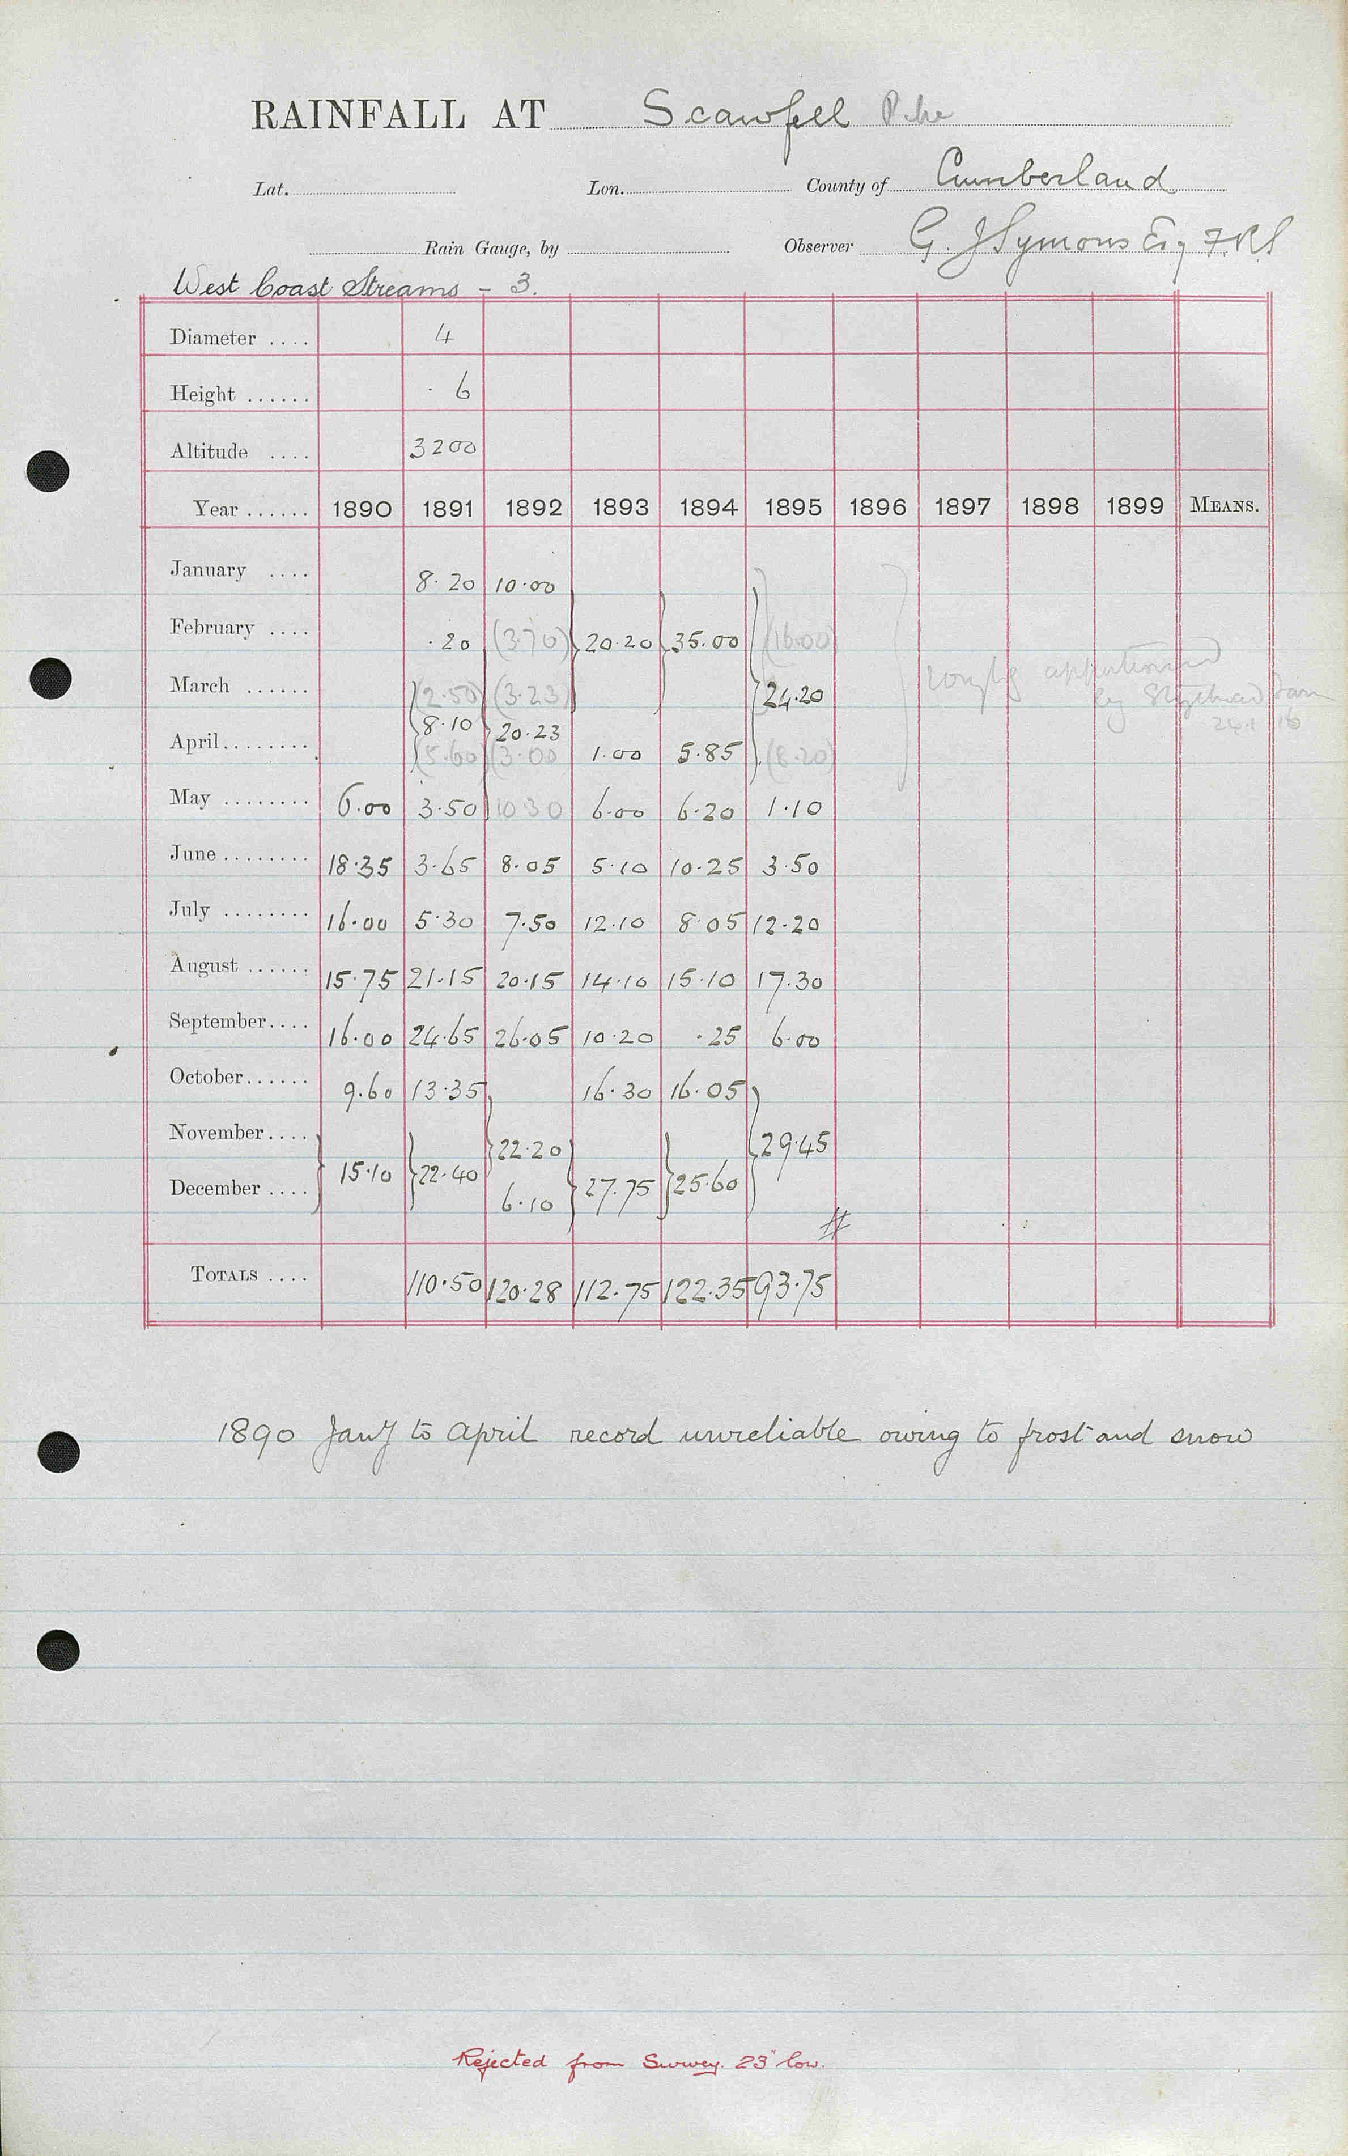 RAINFALL AT Scawfell Pike
Lat. Lon. County of Cumberland
Rain Gauge, by Observer G. J Symons Esq F.R.S
West Coast Streams - 3.
Diameter .... 4
Height ...... · 6
Altitude .... 3200
Year ...... 1890 1891 1892 1893 1894 1895 1896 1897 1898 1899 MEANS.
January .... 8.20 10.00
February .... .20 (3.70) 20.20 35.00 (16.00)
March ...... (2.50) (3.23) 24.20
8.10 20.23
April ........ (5.60) (3.00) 1.00 5.85 (8.20)
roughly apportioned
by Tarn
May ........ 6.00 3.50 10 30 6.00 6.20 1.10
June ........ 18.35 3.65 8.05 5.10 10.25 3.50
July ........ 16.00 5.30 7.50 12.10 8.05 12.20
August ...... 15.75 21.15 20.15 14.10 15.10 17.30
September.... 16.00 24.65 26.05 10.20 .25 6.00
October...... 9.60 13.35 16.30 16.05
November.... 22.20 29.45
December .... 15.10 22.40 6.10 27.75 25.60
#
TOTALS .... 110.50 120.28 112.75 122.35 93.75
1890 Jany to April record unreliable owing to frost and snow
Rejected from Survey. 23" low.